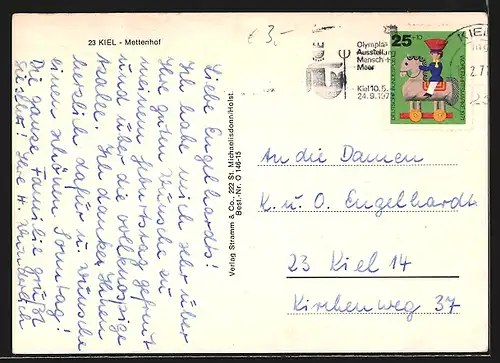 23 KIEL - Mettenhof
€ 3,-
Liebe Engelhardts!
Ich habe mich sehr über
Ihre guten Wünsche zu
meinem Geburtstag gefreut
und über die vollknospige
Azalee. Ich danke Ihnen
herzlich dafür u. wünsche
einen schönen Sonntag!
Die ganze Familie grüßt
Sie alle! Ihre H.
Verlag Stramm & Co., 222 St. Michaelisdonn/Holst.
Best.-Nr. O 146-15
Olympia
Ausstellung
Mensch +
Meer
Kiel 10.6.
24.9.197
KIEL
25+10
DEUTSCHE BUNDESPOST
WOHLFAHRTSMARKE
An die Damen
K. u. O. Engelhardt
23 Kiel 14
Kirchenweg 37